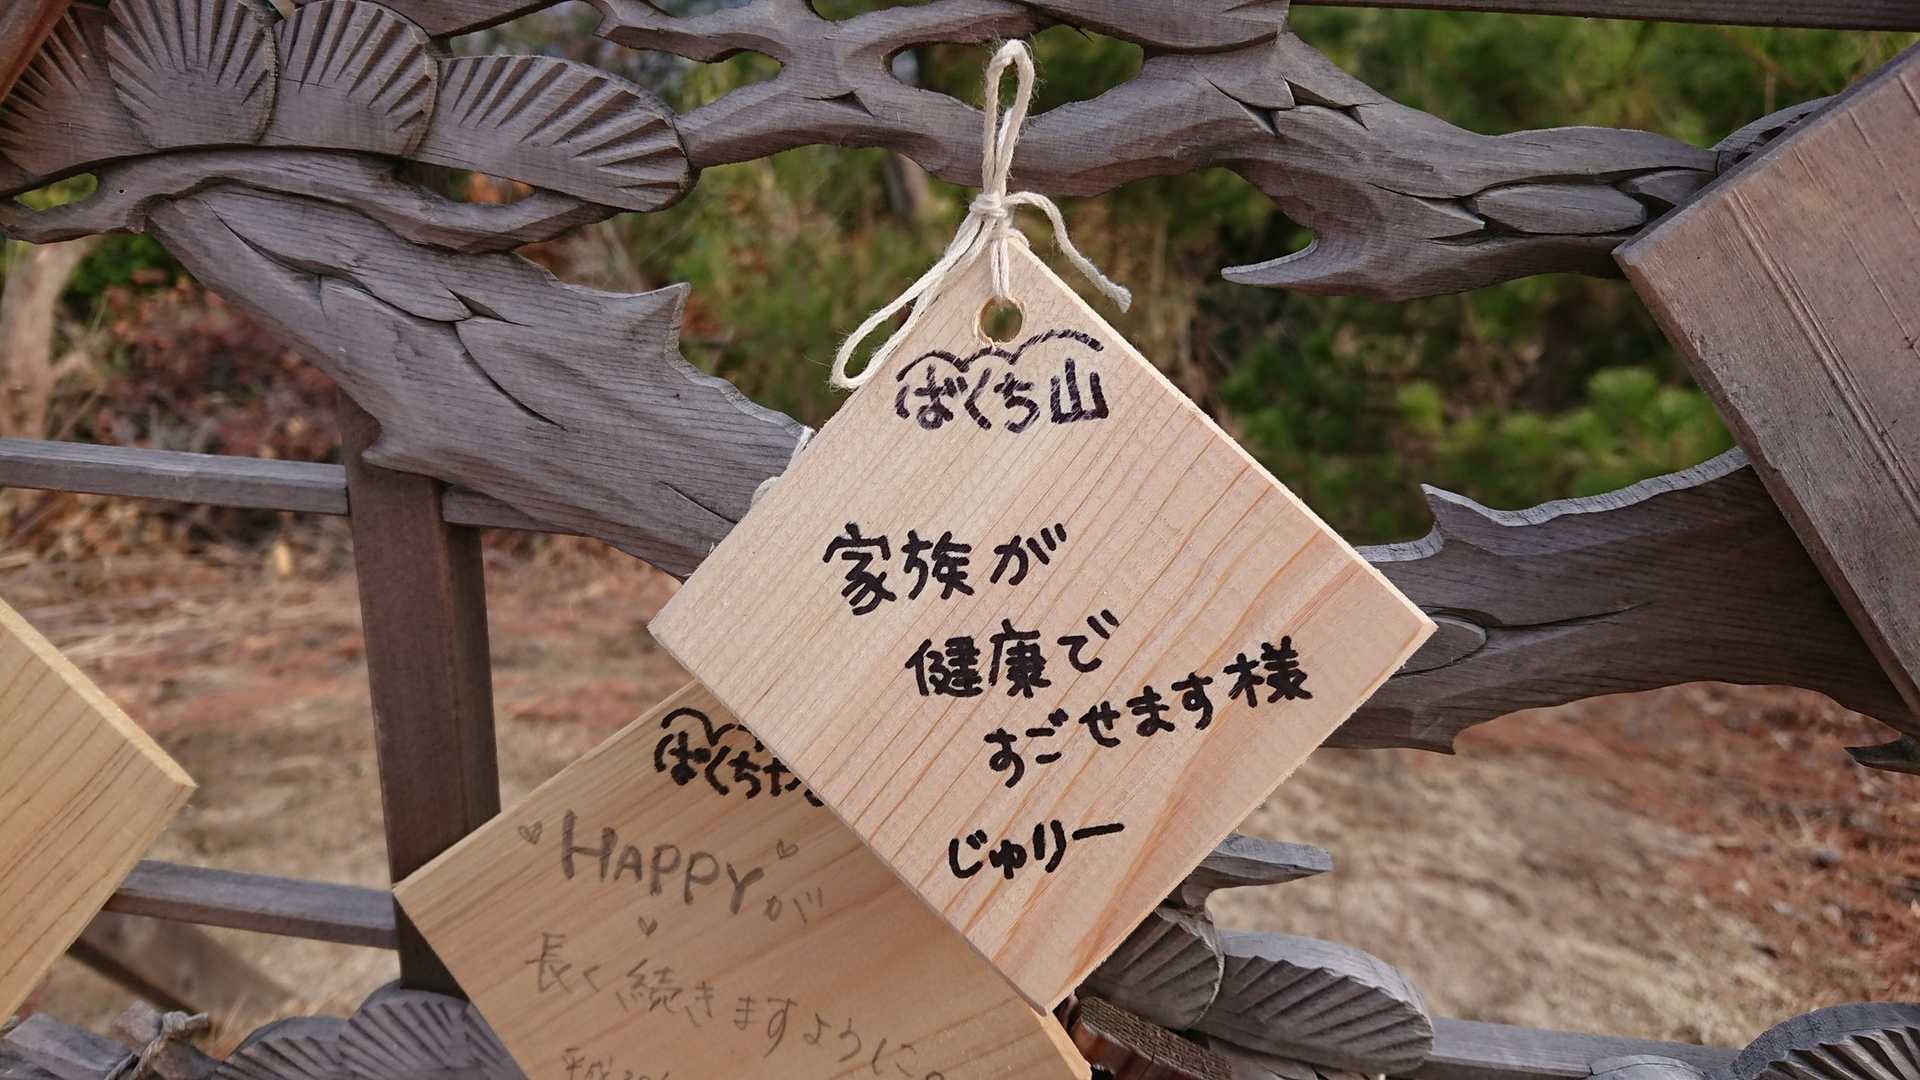 ばくち山
家族が
健康で
すごせます様
じゅりー
ばくち
HAPPYが
長く続きますように。
平成